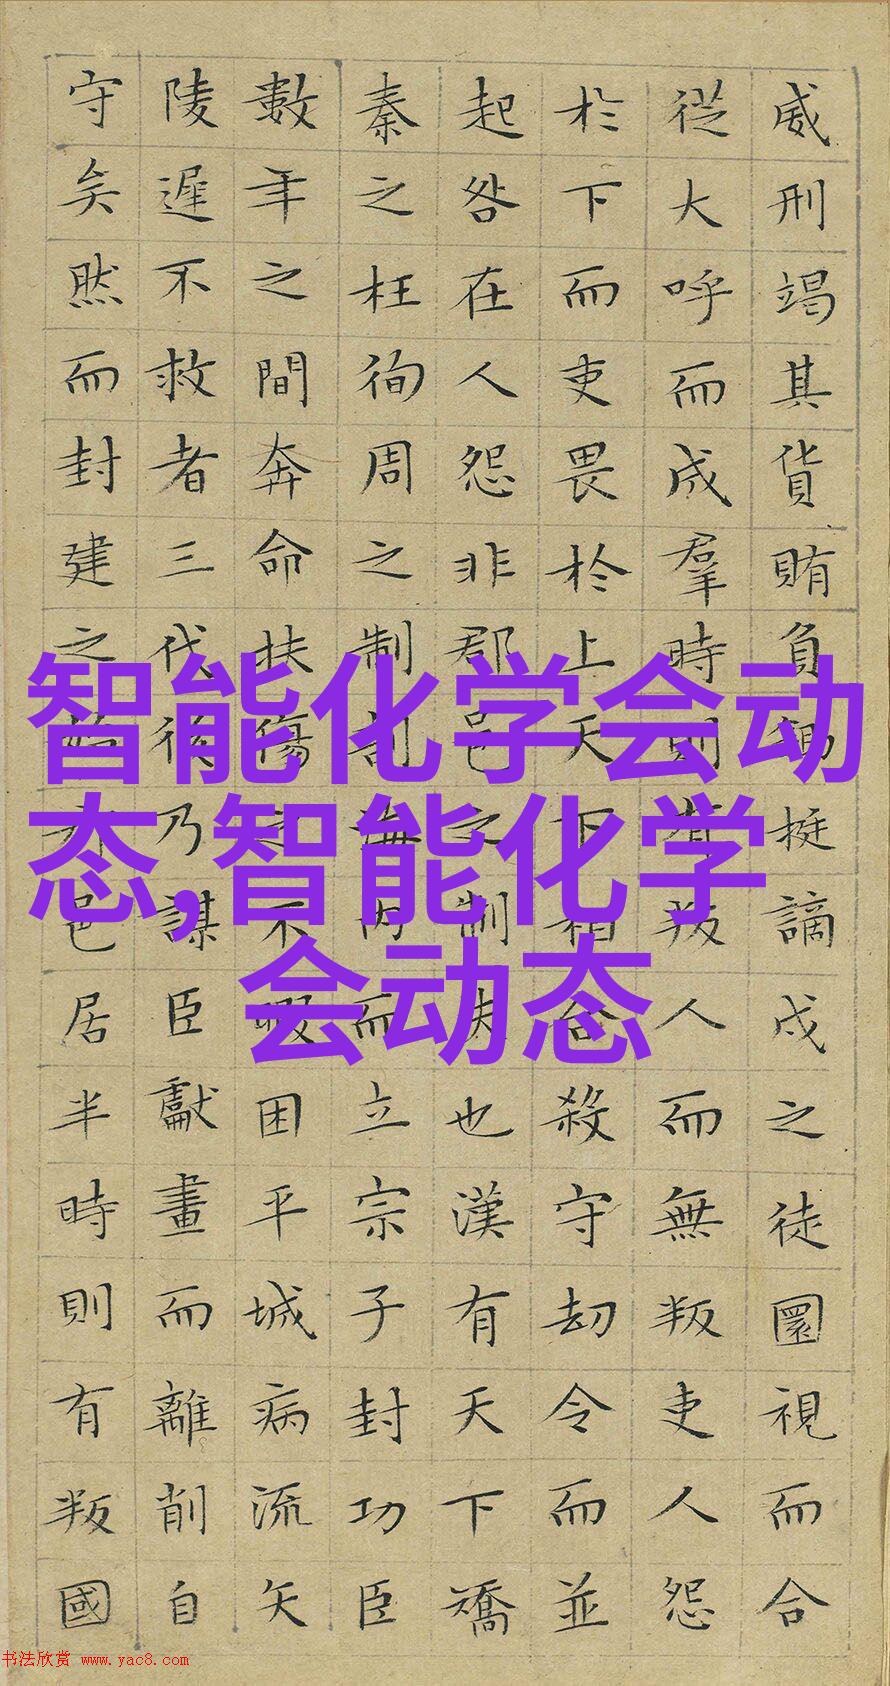 威刑竭其貨賄負鋤梃謫戍之徒圜視而合
從大呼而成羣時則有叛人而無叛吏人怨
於下而吏畏於上天下相合殺守劫令而並
起咎在人怨非郡邑之制失也漢有天下矯
秦之枉徇周之制剖海内而立宗子封功臣
數年之間奔命扶傷之不暇困平城病流矢
陵遲不救者三代後乃謀臣獻畫而離削自
守矣然而封建之始郡邑居半時則有叛國
智能化学会动
态,智能化学
会动态
书法欣赏 www.yac8.com